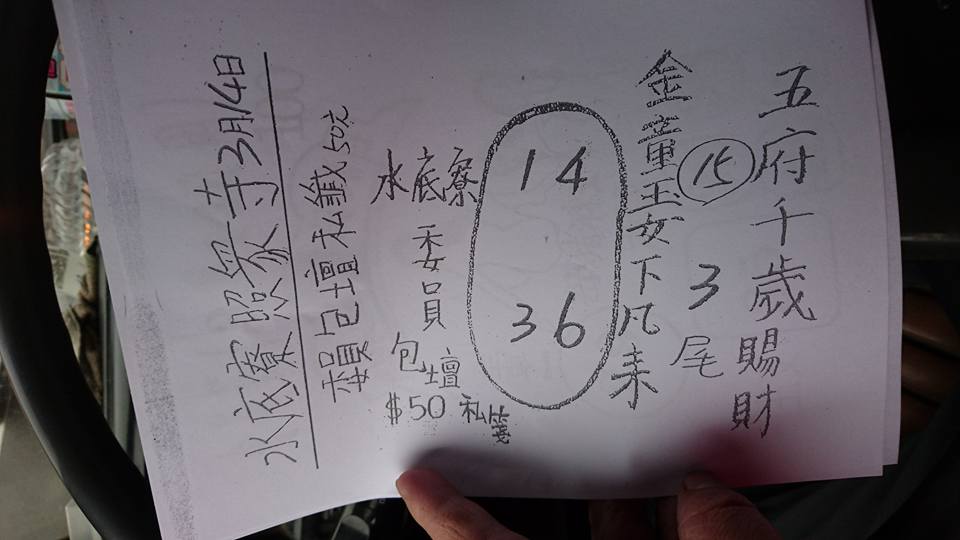 五府千歲賜財
15
3尾
金童玉女下凡来
14
36
水底寮
委員
包壇
$50 私簽
賴包壇私籤50元
水底寮照眾寺3月14日